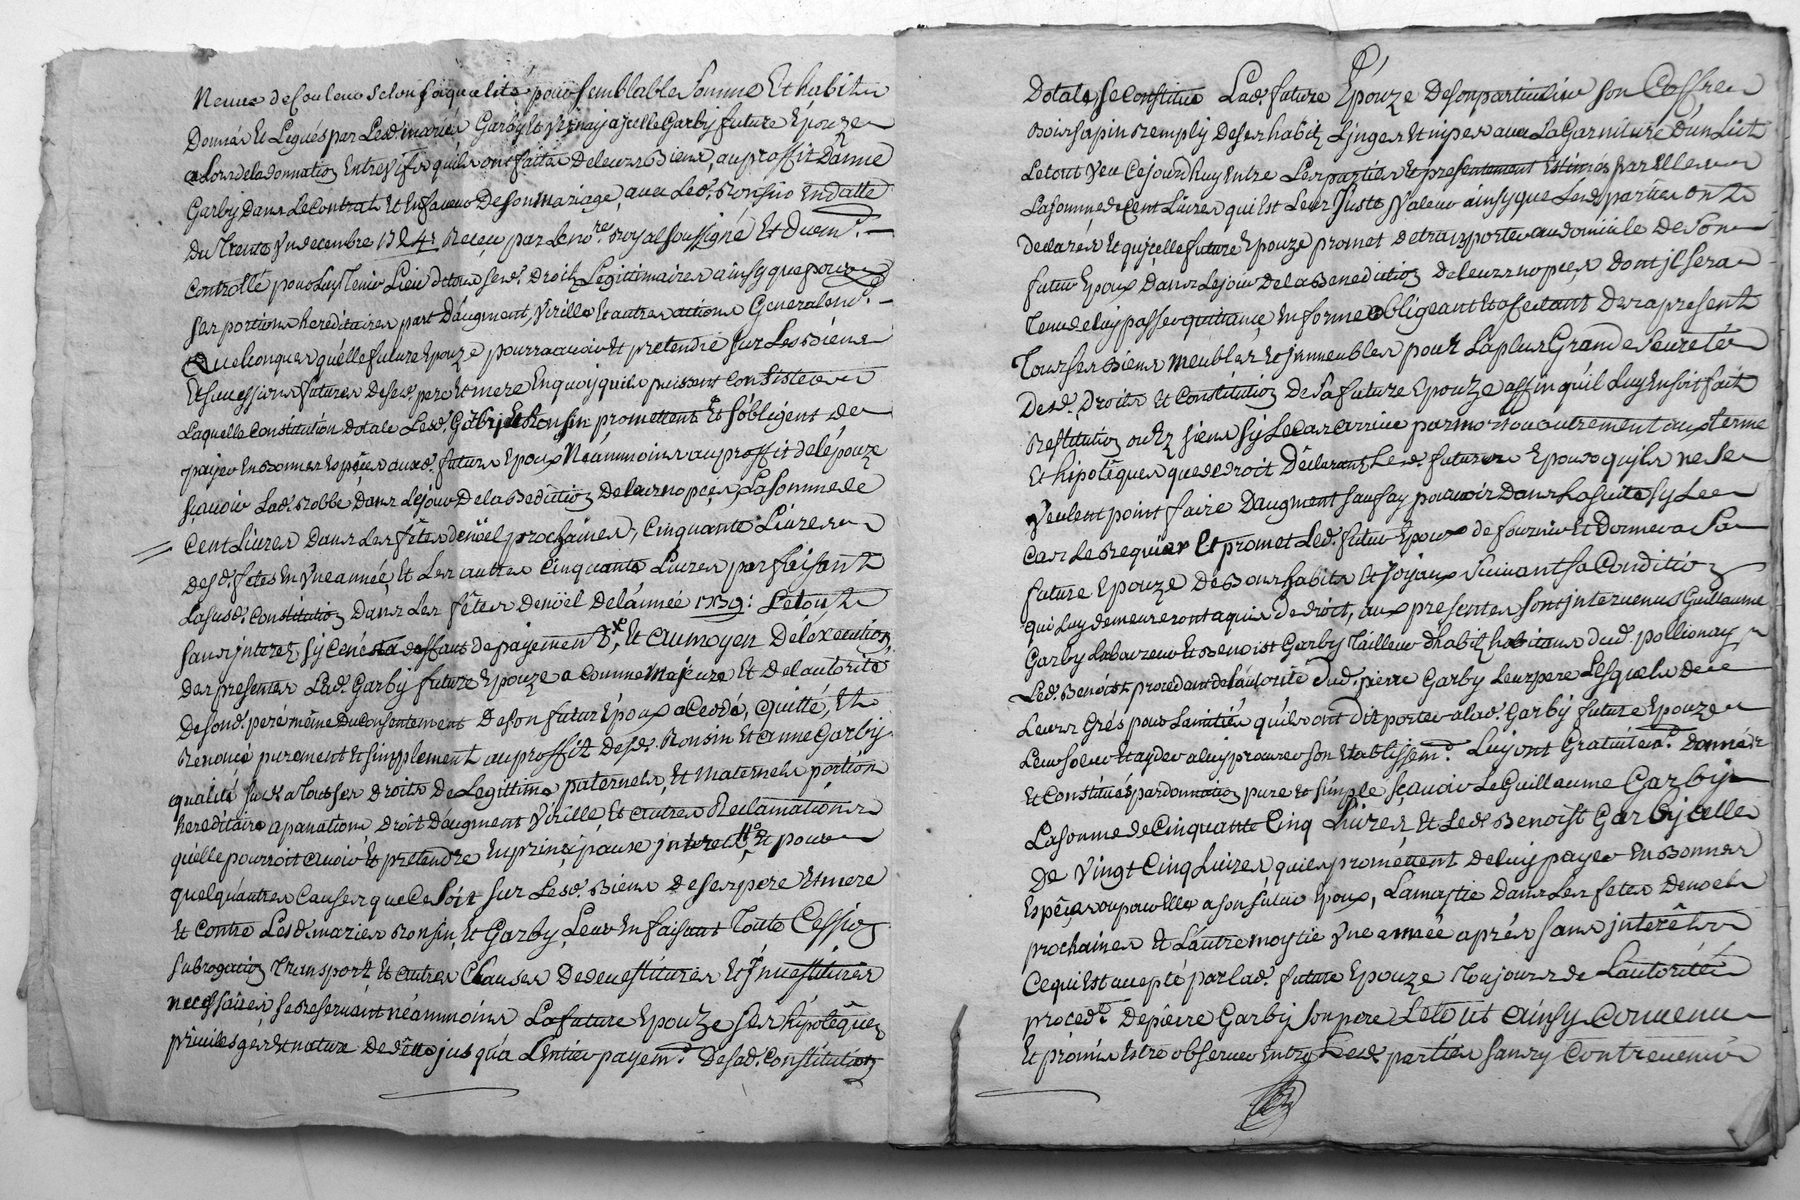 Neuve de Couleur selon sa qualité pour semblable somme Et habits
Donnés Et Legués par Lesd. mariés Garby Et Vernay a jcelle Garby future Epouze
a Lors de la donnation Entre vifs qu'ils ont faite de leurs Biens, au proffit D'anne
Garby dans Le Contrat Et En faveur De son mariage, avec Led. Ronsin En datte
Du Trente Un decembre 1724. Receu par Le nore. Royal soussigné Et Duem.
Controllé pour Luy Tenir Lieu de tous sesd. Droits Legittimaires ainsy que pour
ses portions hereditaires part D'augment, Virille Et autres actions Generalemt.
Quelconques qu'elle future Epouze pourra avoir Et pretendre sur Les Biens
Et successions futures de sesd. pere Et mere En quoy qu'ils puissent Consister
Laquelle Constitution dotale Lesd. Garby Et Ronsin promettent Et s'obligent de
payer En Bonnes Espèces auxd. futurs Epoux Néammoins au proffit de lépouze
sçavoir Lad. Robbe Dans Le jour De la Bediction De leurs nopces, La somme de
Cent Livres Dans Les fêtes de noël prochaines, Cinquante Livres
desd. fêtes En Une année, Et Les autres Cinquante Livres parfaisant
La susd. Constitution Dans Les fêtes De noël De l'année 1739: Le tout
sans jnterez sy ce n'est a deffaut de payement &. Et au moyen De l'execution
Des presentes Lad. Garby future Epouze a Comme Majeure Et de l'autorité
de sond. peré même Du Consentement De son futur Epoux a Cedé, quitté, Et
Renoncé purement Et simplement au proffit desd. Ronsin Et anne Garby
qualité susd. a Tous ses droits De Legittime paternels, Et maternels portion
hereditaire apanation, Droit D'augment Virille, Et autres Reclamations
qu'elle pourroit avoir Et pretendre En principaux jnterets, Et pour
quelqu'autres Causes que Ce soit sur Lesd. Biens de ses pere Et mere
Et Contre Lesd. mariés Ronsin, Et Garby, Leur En faisant Toute Cession
subrogation Transport, Et autres Clauses De devestitures Et jnvestitures
necessaires se Reservant néammoins La future Epouze ses hipotêques
privileges Et nature De dette jusqu'a L'entier payemt. De sad. Constitution
Dotale se Constitue Lad. future Epouze De son particulier son Coffre
Bois sapin Remply De ses habits Linges Et nipes avec La Garniture D'un Lict
Le tout Veu Cejourd'huy Entre Les parties Et presentement Estimés par Elles
La somme de Cent Livres qui Est Leur Juste Valeur ainsy que Lesd. parties ont
Declaré Et qu'jcelle future Epouze promet De transporter au domicile De son
futur Epoux Dans Le jour De la Benediction De leurs nopces dont jl sera
Tenu de luy passer quittance En forme obligeant Et afectant Dez a present
Tous ses Biens Meubles Et jmmeubles pour La plus Grande seureté
Desd. Droits Et Constitution De sa future Epouze affin qu'il Luy En soit fait
Restitution ou Ez siens sy Le Cas arrive par mort ou autrement aux terme
Et hipotêques que de droit Déclarant Lesd. futurs Epoux qu'ils ne se
Veulent point faire D'augment sauf a y pourvoir Dans La suite sy Le
Cas Le Requier Et promet Led. futur Epoux de fournir Et Donner a sa
future Epouze De Bons habits Et Joyaux suivant sa Condition
qui Luy demeureront aquis de droit, aux presentes sont jntervenus Guillaume
Garby Laboureur Et Benoist Garby Tailleur d'habits habitans dud. pollionay
Led. Benoist procedant de l'autorité dud. pierre Garby Leur pere Lesquels de
Leurs Grés pour L'amitié qu'ils ont Dit porter a lad. Garby future Epouze
Leur soeur Et ayder a luy procurer son Etablissemt. Luy ont Gratuitemt. Donné
Et Constitués par donnation pure Et simple sçavoir Le Guillaume Garby
La somme de Cinquante Cinq Livres, Et Led. Benoist Garby celle
De Vingt Cinq Livres qu'ils promettent De luy payer En Bonnes
Espèces ou pour Elle a son futur Epoux, La moitié Dans Les fetes De noel
prochaines Et L'autre moytié Vne année aprés sans jnterêts
Ce qui Est accepté par lad. future Epouze Toujours de L'autorité
procedte. De pierre Garby son pere Le tout ainsy Convenu
Et promis Estre observer Entre Lesd. parties sans y Contrevenir